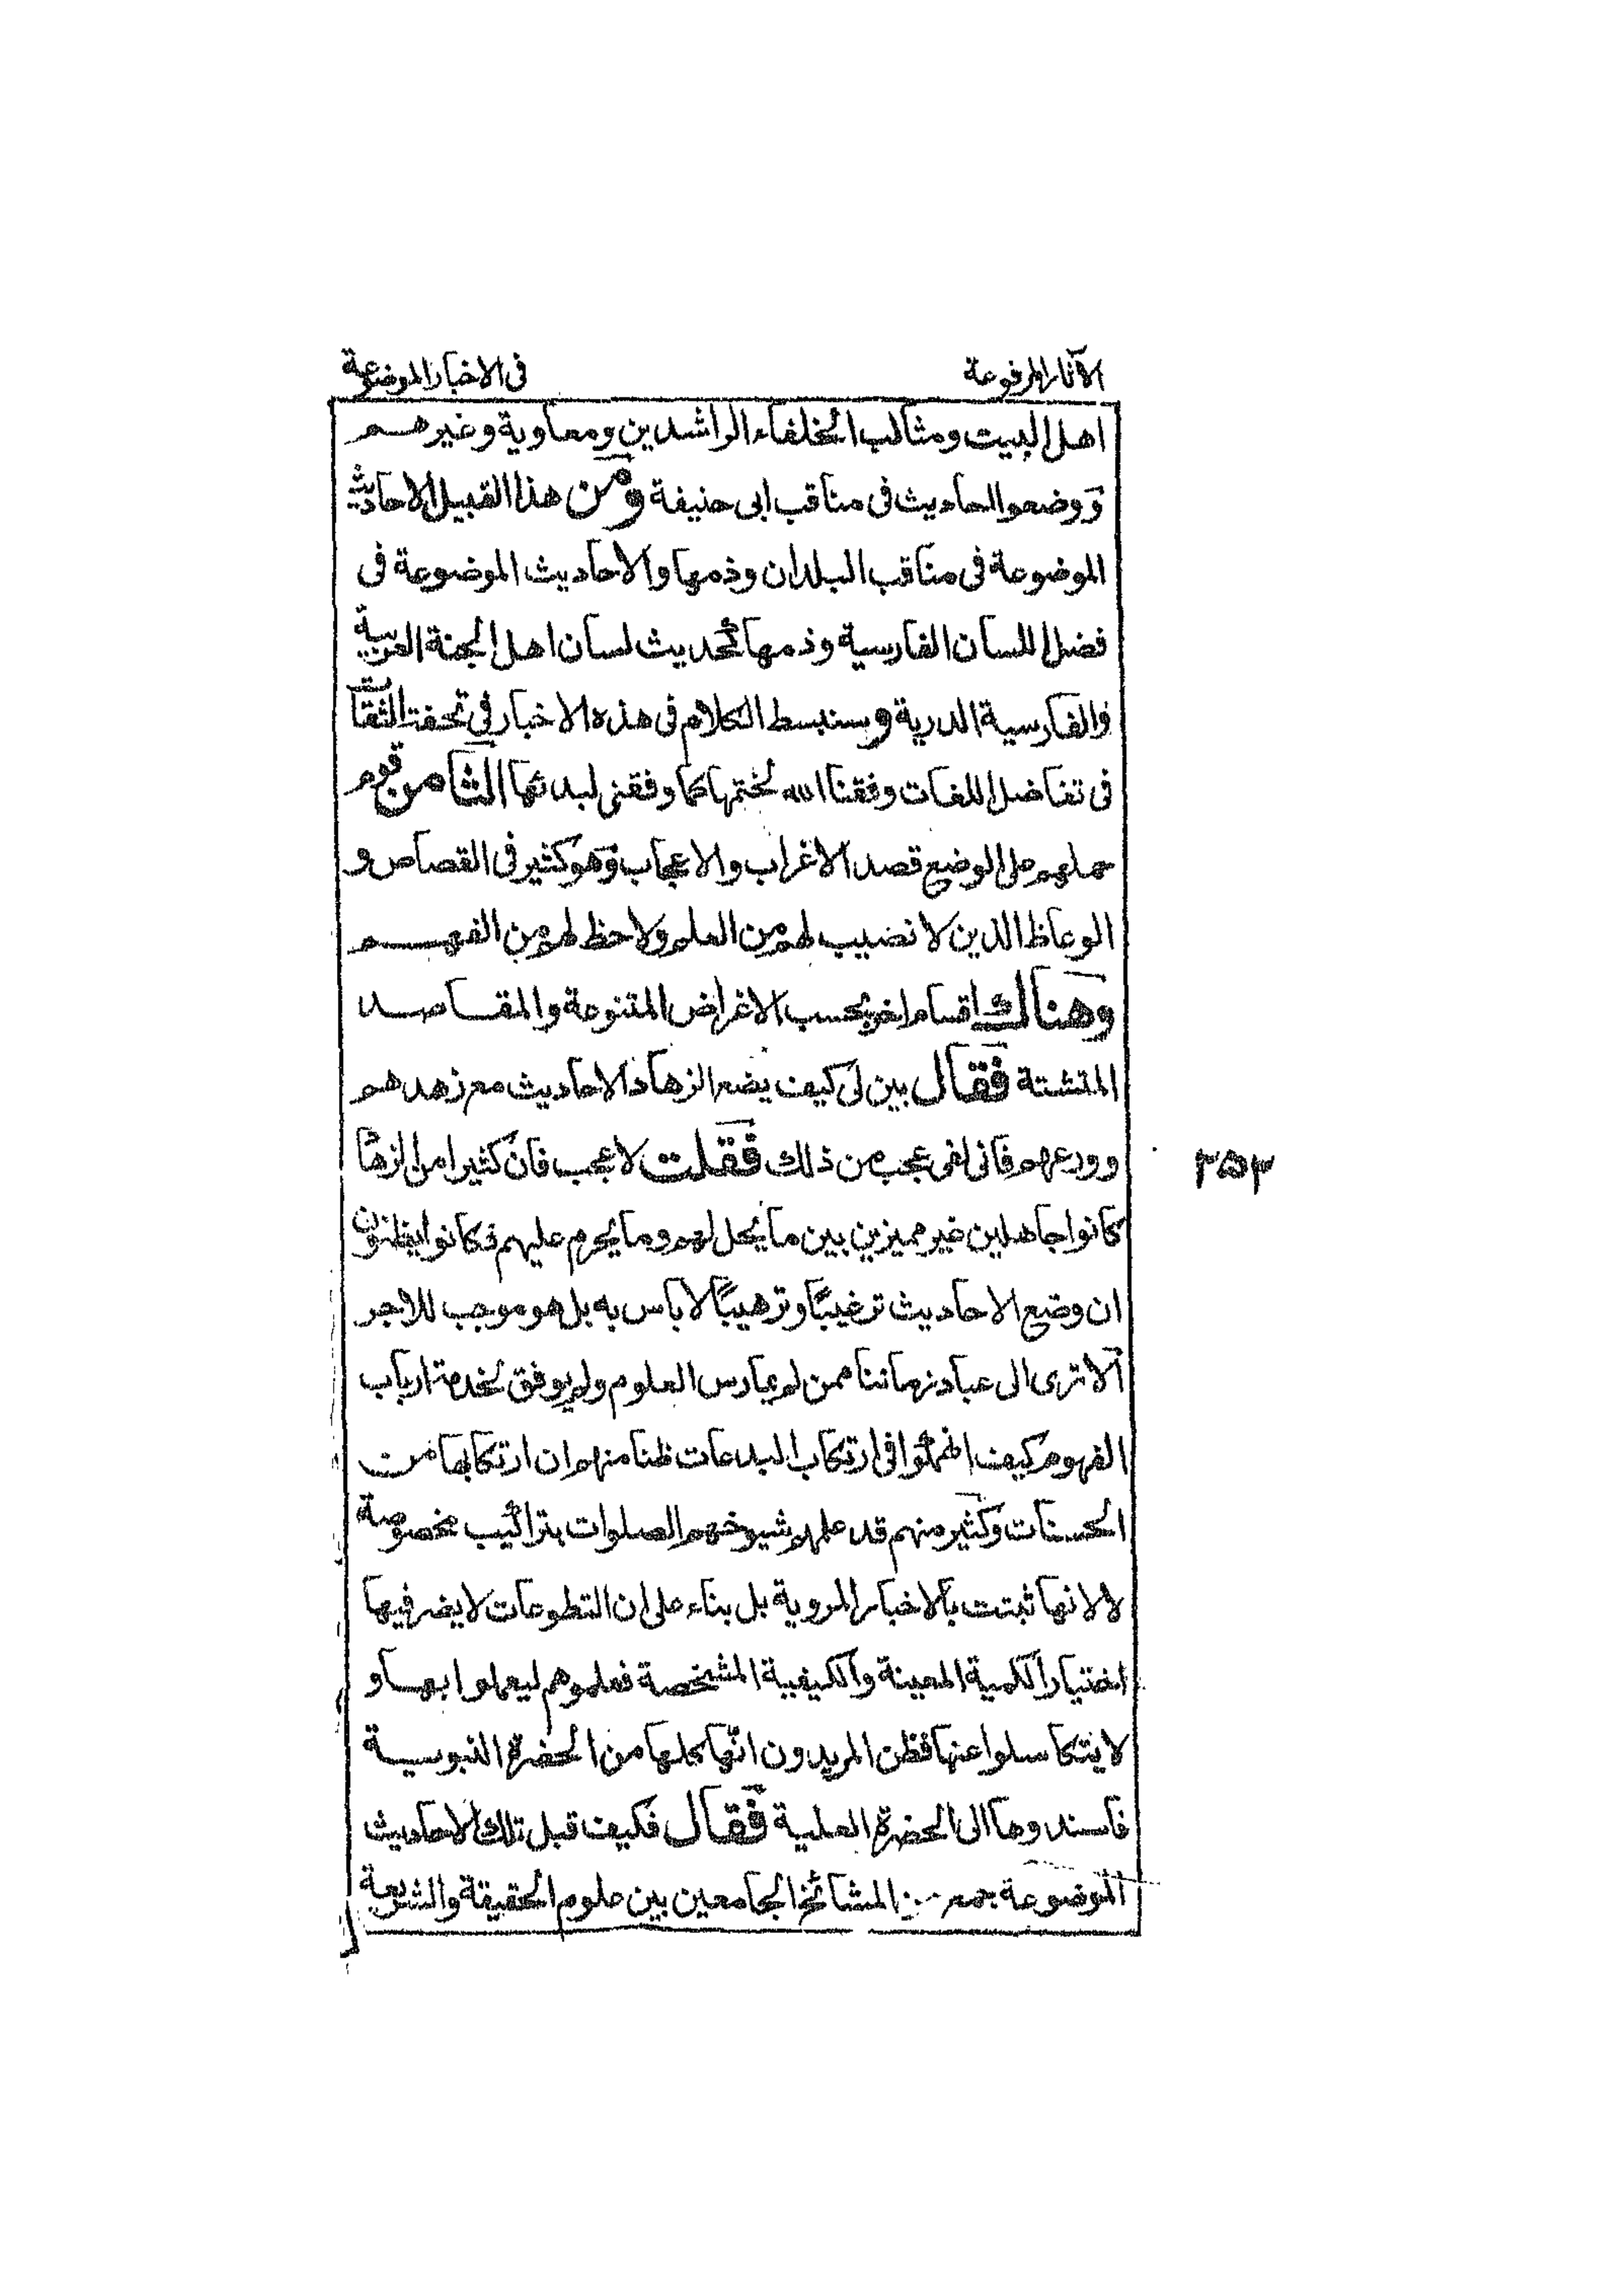 الآثار المرفوعة
فى الاخبار الموضوعة
اهل البيت ومثالب الخلفاء الراشدين ومعاوية وغيرهم
ووضعوا الحاديث فى مناقب ابى حنيفة ومن هذا القبيل الاحاديث
الموضوعة فى مناقب البلدان وذمها والاحاديث الموضوعة فى
فضل اللسان الفارسية وذمها كحديث لسان اهل الجنة العربية
والفارسية الدرية وسنبسط الكلام فى هذه الاخبار فى تحفة الثقات
فى تفاضل اللغات وفقنا الله لختمها كما وفقنى لبدئها الثامن قوم
حملهم على الوضع قصد الاغراب والاعجاب وهو كثير فى القصاص و
الوعاظ الذين لا نصيب لهم من العلم ولا حظ لهم من الفهم
وهناك اقسام اخر بحسب الاغراض المتنوعة والمقاصد
المتشتة فقال بين لى كيف يضع الزهاد الاحاديث مع زهدهم
وورعهم فانى لفى عجب من ذلك فقلت لا عجب فان كثيرا من الزها
كانوا جاهلين غير مميزين بين ما يحل لهم وما يحرم عليهم فكانوا يظنون
ان وضع الاحاديث ترغيبًا وترهيبًا لا باس به بل هو موجب للاجر
الا ترى الى عباد زماننا ممن لم يمارس العلوم ولم يوفق لخدمة ارباب
الفهوم كيف انهمكوا فى ارتكاب البدعات ظنا منهم ان ارتكابها من
الحسنات وكثير منهم قد علمهم شيوخهم الصلوات بتراكيب مخصوصة
لا لانها ثبتت بالاخبار المروية بل بناء على ان التطوعات لا يضر فيها
اختيار الكمية المعينة والكيفية المشخصة فعلموهم ليعملوا بها و
لا يتكاسلوا عنها فظن المريدون انها كلها من الحضرة النبوية
فاسندوها الى الحضرة العلية فقال فكيف قبل تلك الاحاديث
الموضوعة جمع من المشائخ الجامعين بين علوم الحقيقة والشريعة
٣٥٣